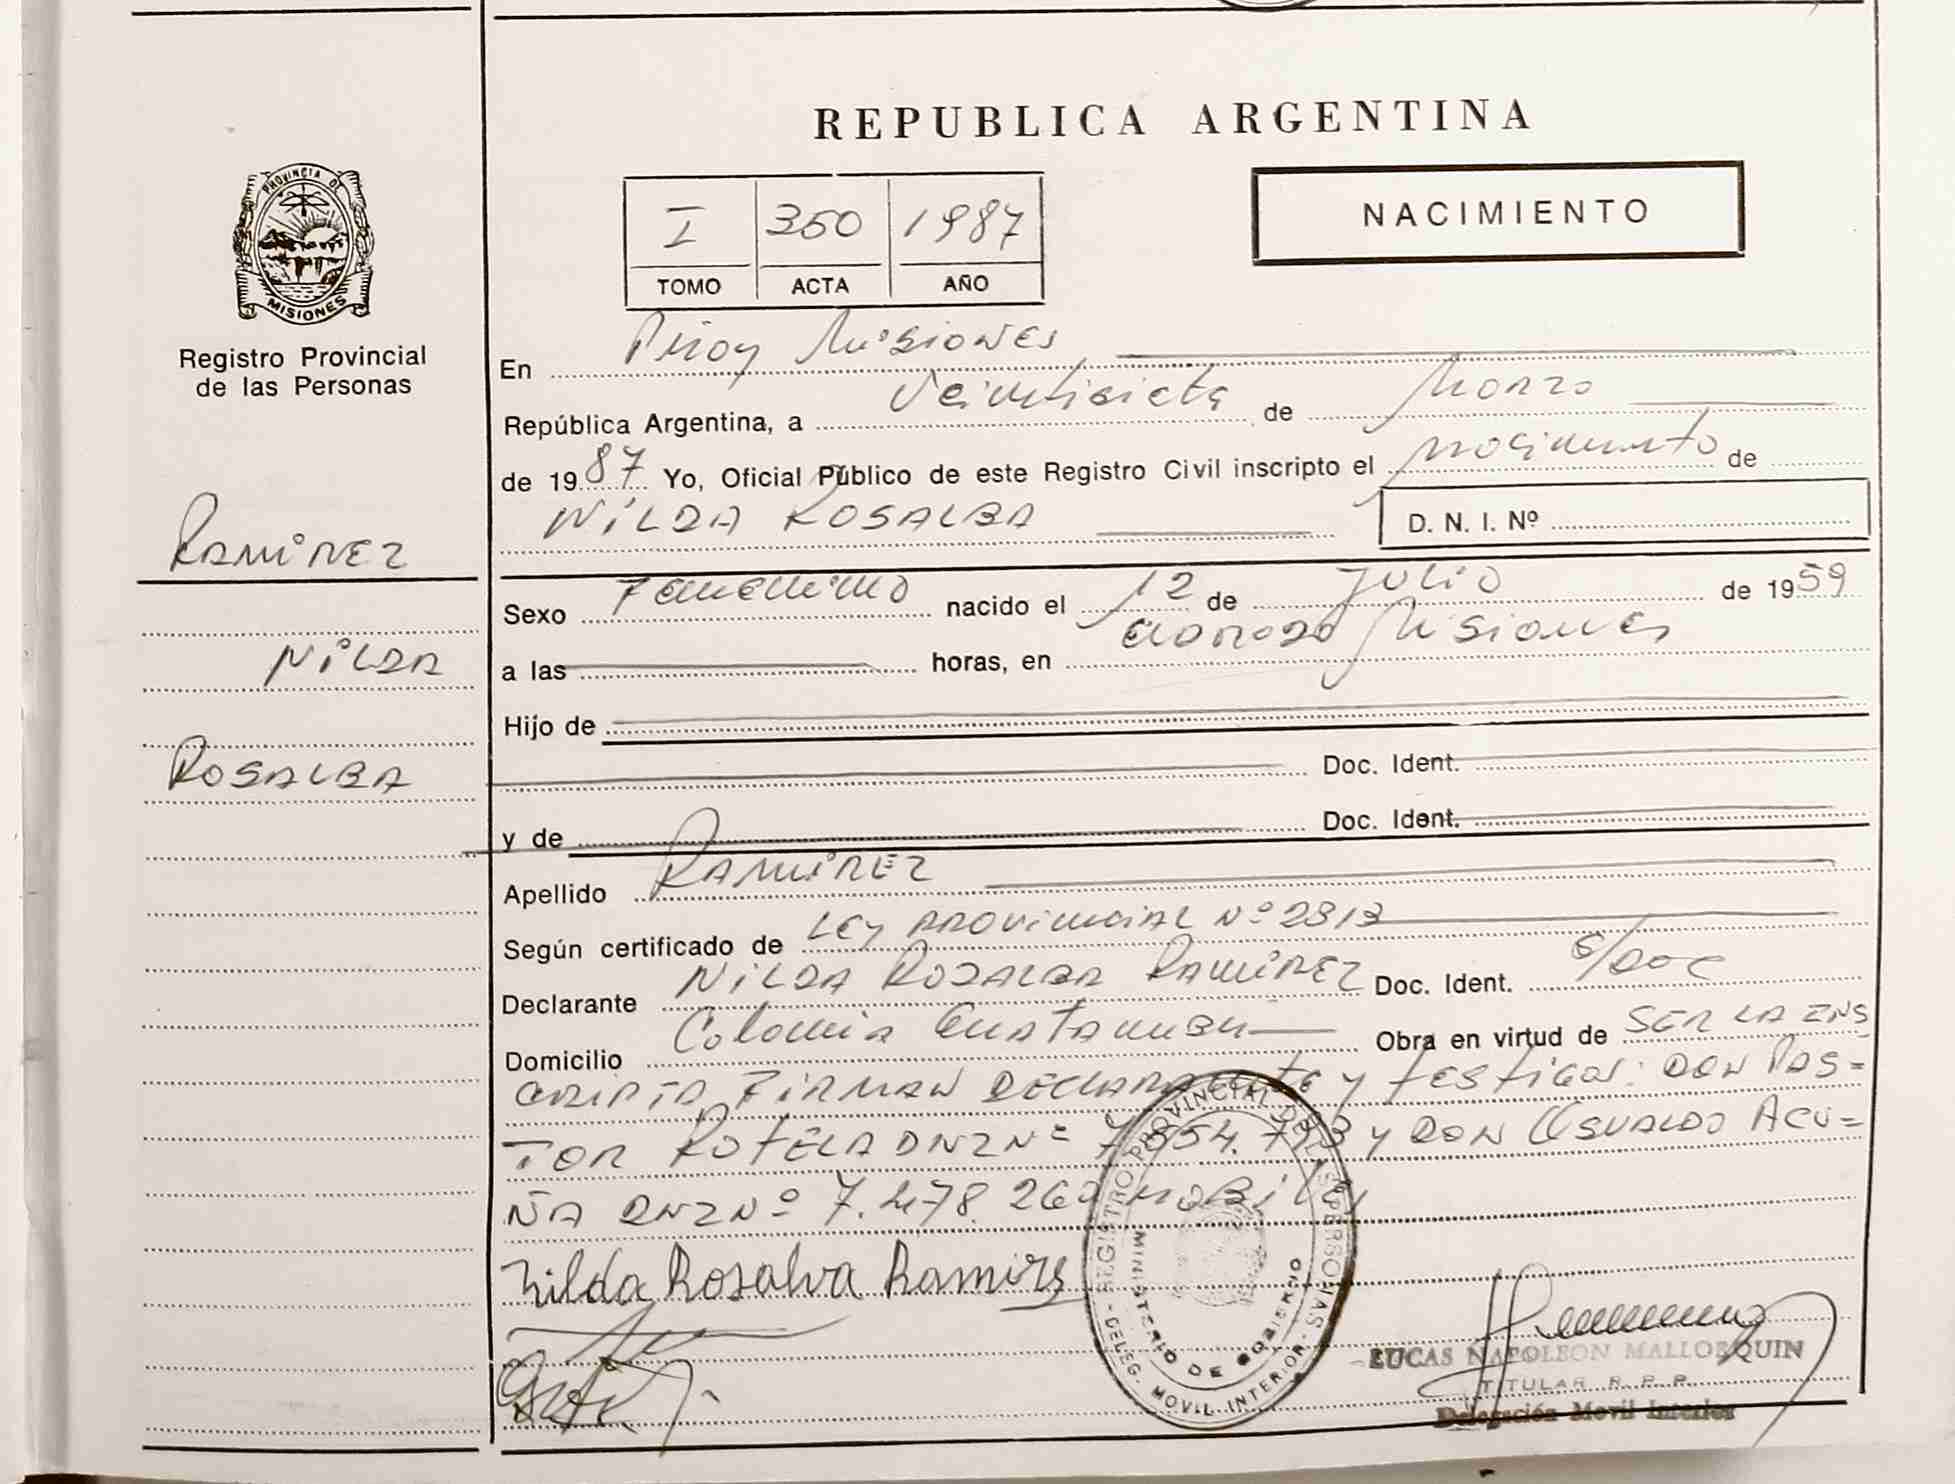 REPUBLICA ARGENTINA
PROVINCIA DE
MISIONES
Registro Provincial
de las Personas
RAMIREZ
NILDA
ROSALBA
I 350 1987
TOMO ACTA AÑO
NACIMIENTO
En Piray Misiones
República Argentina, a Veintisiete de Marzo
de 1987 Yo, Oficial Público de este Registro Civil inscripto el nacimiento de
NILDA ROSALBA D. N. I. Nº
Sexo Femenino nacido el 12 de Julio de 1959
a las horas, en Eldorado Misiones
Hijo de
Doc. Ident.
y de Doc. Ident.
Apellido RAMIREZ
Según certificado de LEY PROVINCIAL Nº 2313
Declarante NILDA ROSALBA RAMIREZ Doc. Ident. S/DOC
Domicilio Colonia Guatambu Obra en virtud de SER LA INS
CRIPTA FIRMAN DECLARANTE y testigos: DON PAS=
TOR ROTELA DNI Nº y DON OSVALDO ACU=
ÑA DNI Nº 7.478.260 HABILES
Nilda Rosalva Ramirez
REGISTRO PROVINCIAL DE LAS PERSONAS
MINISTERIO DE GOBIERNO
- DELEG. MOVIL INTERIOR -
LUCAS NAPOLEON MALLORQUIN
TITULAR R. P. P.
Delegación Movil Interior